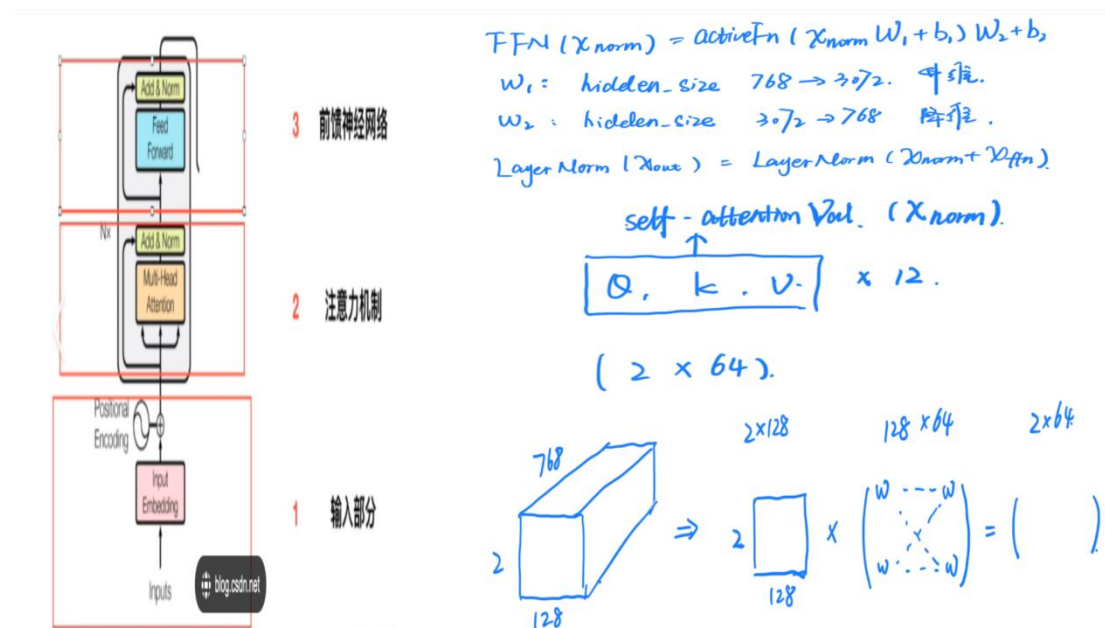 Add & Norm
Feed
Forward
3 前馈神经网络
Nx
Add & Norm
Multi-Head
Attention
2 注意力机制
Positional
Encoding
Input
Embedding
1 输入部分
Inputs
blog.csdn.net
FFN (x norm) = activeFn ( x norm W₁ + b₁ ) W₂ + b₂
W₁ : hidden_size 768 → 3072. 升维.
W₂ : hidden_size 3072 → 768 降维.
Layer Norm ( xout ) = LayerNorm ( xnorm + xffn ).
self - attention Val. ( X norm ).
↑
Q. k. V. × 12.
( 2 × 64 ).
2×128 128 ×64 2×64
768
2
128
⇒ 2 × ( w --- w
w --- w ) = ( )
128